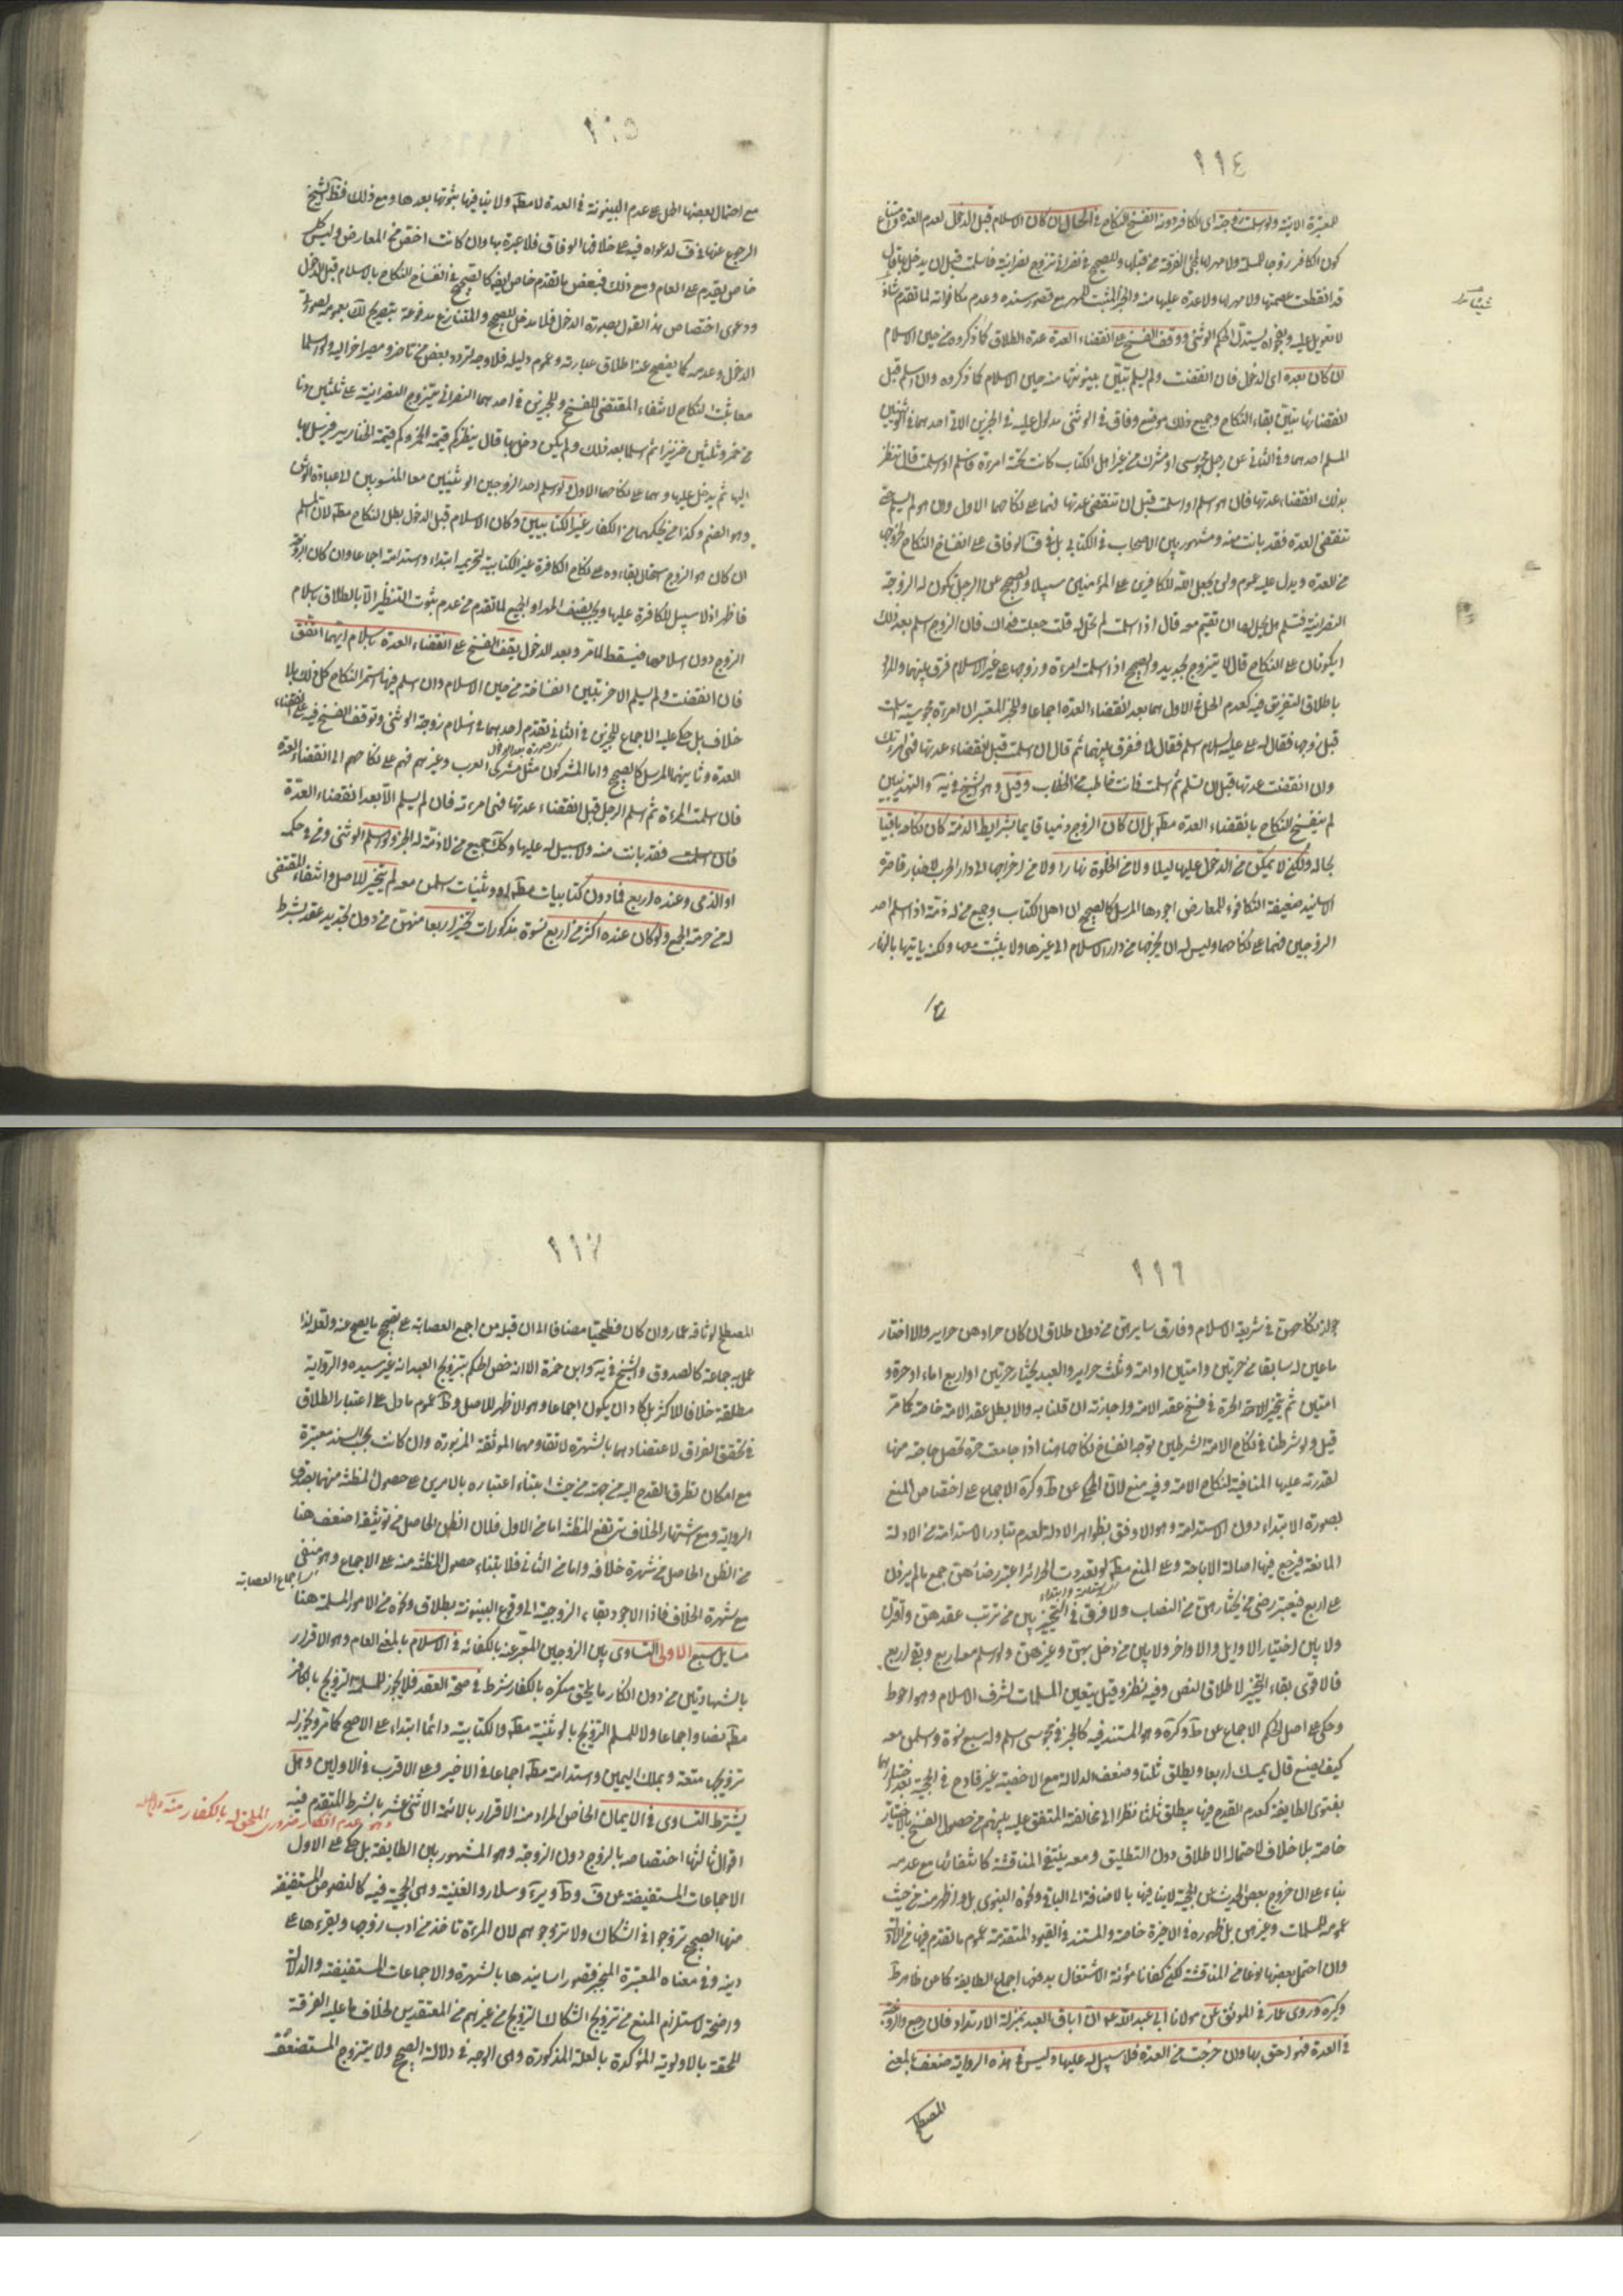 ١١٤
المعتبرة الاتية ولو اسلمت زوجته اى الكافر دونه انفسخ النكاح فى الحال ان كان الاسلام قبل الدخول لعدم العدة وامتناع
كون الكافر زوجا للمسلمة ولا مهر لها لمجئ الفرقة من قبلها وللصحيح فى نصرانى تزوج نصرانية فاسلمت قبل ان يدخل بها قال
قد انقطعت عصمتها ولا مهر لها ولا عدة عليها منه والخبر المثبت للمهر مع قصور سنده وعدم مكافئته لما تقدم شاذ
لا تعويل عليه وبفحواه يستدل الحكم الوثنى ووقف الفسخ على انقضاء العدة عدة الطلاق كما ذكروه من حين الاسلام
ان كان بعده اى الدخول فان انقضت ولم يسلم تبين بينونتها منه حين الاسلام كما ذكروه وان اسلم قبل
انقضائها تبين بقاء النكاح وجميع ذلك موضع وفاق فى الوثنى مدلول عليه فى الخبرين الاتى احدهما فى الوثنيين
المسلم احدهما وفى الثانى عن رجل مجوسى او مشرك من غير اهل الكتاب كانت تحته امرءة فاسلم او اسلمت قال ينتظر
بذلك انقضاء عدتها فان هو اسلم او اسلمت قبل ان تنقضى عدتها فهما على نكاحهما الاول وان هو لم يسلم حتى
تنقضى العدة فقد بانت منه ومشهور بين الاصحاب فى الكتابى بل فى ف الوفاق على انفساخ النكاح بخروجها
من العدة ويدل عليه عموم ولن يجعل الله للكافرين على المؤمنين سبيلا والصحيح عن الرجل تكون له الزوجة
النصرانية فتسلم هل يحل لها ان تقيم معه قال اذا اسلمت لم تحل له قلت جعلت فداك فان الزوج اسلم بعد ذلك
ايكونان على النكاح قال لا يتزوج بجديد والصحيح اذا اسلمت امرءة وزوجها على غير الاسلام فرق بينهما والمراد
باطلاق التفريق فيه لعدم الحل فى الاول هما بعد انقضاء العدة اجماعا وللخبر المعتبر ان امرءة مجوسية اسلمت
قبل زوجها فقال له على عليه السلام اسلم فقال لا ففرق بينهما ثم قال ان اسلمت قبل انقضاء عدتها فهى امرءتك
وان انقضت عدتها قبل ان تسلم ثم اسلمت فانت خاطب من الخطاب وقيل وهو الشيخ فى ية والتهذيبين
لم ينفسخ النكاح بانقضاء العدة مطلقا بل ان كان الزوج ذميا قايما بشرايط الذمة كان نكاحه باقيا
بحاله ولكن لا يمكن من الدخول عليها ليلا ولا من الخلوة نهارا ولا من اخراجها الى دار الحرب لاخبار قاصرة
الاسانيد ضعيفة التكافوء للمعارض اجودها المرسل كالصحيح ان اهل الكتاب وجميع من له ذمة اذا اسلم احد
الزوجين فهما على نكاحهما وليس له ان يخرجها من دار الاسلام الى غيرها ولا يبيت معها ولكنه ياتيها بالنهار
١١٥
مع احتمال بعضها الحمل على عدم البينونة فى العدة لا مطلقا ولا ينافيها ثبوتها بعدها ومع ذلك فظاهر الشيخ
الرجوع عنها فى ف لدعواه فيه على خلافها الوفاق فلا عبرة بها وان كانت اخص من المعارض وليس كل
خاص يقدم على العام ومع ذلك فبعض ما تقدم خاص ايضا كالصحيح فى انفساخ النكاح بالاسلام قبل الدخول
ودعوى اختصاص هذا القول بصورة الدخول فلا مدخل للصحيح والمتنازع مدفوعة بتصريح بعمومه لصورتى
الدخول وعدمه كما يفصح عنه اطلاق عبارته وعموم دليله فلا وجه لتردد بعض من تاخر ومصير اخر اليه ولو اسلما
معا ثبت النكاح لانتفاء المقتضى للفسخ وللخبرين فى احدهما النصرانى يتزوج النصرانية على ثلثين دنا
من خمر وثلثين خنزيرا ثم اسلما بعد ذلك ولم يكن دخل بها قال ينظر كم قيمة الخمر وكم قيمة الخنازير فيرسل بها
اليها ثم يدخل عليها وهما على نكاحهما الاول ولو اسلم احد الزوجين الوثنيين معا المنسوبين الى عبادة الوثن
وهو الصنم وكذا من بحكمهما من الكفار غير الكتابيين وكان الاسلام قبل الدخول بطل النكاح مطلقا لان المسلم
ان كان هو الزوج استحال بقاءه على نكاح الكافرة غير الكتابية لتحريمه ابتداء واستدامة اجماعا وان كان الزوجة
فاظهر اذ لا سبيل للكافر عليها ويجب نصف المهر او الجميع لما تقدم من عدم ثبوت التنظير الا بالطلاق باسلام
الزوج دون اسلامها فيسقط لما مر وبعد الدخول يقف الفسخ على انقضاء العدة باسلام ايهما اتفق
فان انقضت ولم يسلم الاخر تبين انفساخه من حين الاسلام وان اسلم فيها استمر النكاح كل ذلك بلا
خلاف بل حكى عليه الاجماع للخبرين فى الثانى تقدم احدهما فى اسلام زوجة الوثنى وتوقف الفسخ فيه على انقضاء
العدة وثانيهما المرسل كالصحيح واما المشركون مثل مشركى العرب وغيرهم فهم على نكاحهم الى انقضاء العدة
فان اسلمت المرءة ثم اسلم الرجل قبل انقضاء عدتها فهى امرءته فان لم يسلم الا بعد انقضاء العدة
فقد بانت منه ولا سبيل له عليها وكذلك جميع من لا ذمة له الخبر ولو اسلم الوثنى ومن فى حكمه
او الذمى وعنده اربع فما دون كتابيات مطلقا او وثنيات اسلمن معه لم يتخير للاصل وانتفاء المقتضى
له من حرمة الجمع ولو كان عنده اكثر من اربع نسوة مذكورات تخير اربعا منهن من دون تجديد عقد بشرط
١١٦
جواز نكاحهن فى شريعة الاسلام وفارق سايرهن من دون طلاق ان كان حرا وهن حراير والا اختار
ما عين له سابقا من حرتين وامتين او امة وثلث حراير والعبد يختار حرتين او اربع اماء او حرة و
امتين ثم تتخير الحرة فى فسخ عقد الامة واجازته ان قلنا به والا بطل عقد الامة خاصة كما مر
قيل ولو شرطنا فى نكاح الامة الشرطين توجه انفساخ نكاحها هنا اذا جامعت حرة لحصول حاجته منها
لقدرته عليها المنافية لنكاح الامة وفيه منع لان المحكى عن ط وكره الاجماع على اختصاص المنع
بصورة الابتداء دون الاستدامة وهو الاوفق بظواهر الادلة لعدم تبادر الاستدامة من الادلة
المانعة فيرجع فيها اصالة الاباحة وعلى المنع مطلقا لو تعددت الحرائر اعتبر رضائهن جمع ما لم يزدن
على اربع فيعتبر رضى من يختارهن من النصاب ولا فرق فى التخيير بين من ترتب عقدهن واقترن
ولا بين اختيار الاوايل والاواخر ولا بين من دخل بهن وغيرهن ولو اسلم معه اربع وبقى اربع
فالاقوى بقاء التخيير لاطلاق النص وفيه نظر وقيل يتعين المسلمات لشرف الاسلام وهو احوط
وحكى على اصل الحكم الاجماع عن ط وكره وهو المستند فيه كالخبر فى مجوسى اسلم وله سبع نسوة واسلمن معه
كيف يصنع قال يمسك اربعا ويطلق ثلثا وضعف الدلالة مع الاخصية غير قادح فى الحجية بعد اعتضادها
بفتوى الطايفة كعدم القدح فيها بيطلق ثلثا نظرا الى مخالفته المتفق عليه بينهم من حصول الفسخ بالاختيار
خاصة بلا خلاف لاحتماله الاطلاق دون التطليق ومعه ينتفى المناقشة كانتفائها مع عدمه
بناء على ان خروج بعض الحديث عن الحجية لا ينافيها بالاضافة الى الباقى ونحوه النبوى بل واظهر منه من حيث
عمومه للمسلمات وغيرهن بل ظهوره فى الاخيرة خاصة والمستند فى القيود المتقدمة عموم ما تقدم فيها من الادلة
وان احتمل بعضها نوعا من المناقشة لكن كفانا مؤنة الاشتغال بدفعها اجماع الطايفة كما عن ظاهر ط
وكره وروى عمار فى الموثق عن مولانا ابى عبد الله ع ان اباق العبد بمنزلة الارتداد فان رجع والزوجة
فى العدة فهو احق بها وان خرجت من العدة فلا سبيل له عليها وليس فى هذه الرواية ضعف بالمعنى
المصطلح
١١٧
المصطلح لوثاقة عمار وان كان فطحيا مضافا الى ان قبله من اجمع العصابة على تصحيح ما يصح عنه ولعله لذا
عمل به جماعة كالصدوق والشيخ فى ية وابن حمزة الا انه خص الحكم بتزويج العبد امة غير سيده والرواية
مطلقة خلافا للاكثر بل كاد ان يكون اجماعا وهو الاظهر للاصل وظاهر عموم ما دل على اعتبار الطلاق
فى تحقق الفراق لاعتضادهما بالشهرة لا تقاومهما الموثقة المزبورة وان كانت بحسب السند معتبرة
مع امكان تطرق القدح اليه من جهته من حيث ابتناء اعتباره بالامرين على حصول المظنة منهما بصدق
الرواية ومع اشتهار الخلاف يرتفع المظنة اما من الاول فلان الظن الحاصل من توثيقه اضعف هنا
من الظن الحاصل من شهرة خلافه واما من الثانى فلابتناء حصول المظنة منه على الاجماع وهو منفى
اى اجماع العصابة
مع شهرة الخلاف فاذا الاجود بقاء الزوجية الى وقوع البينونة بطلاق ونحوه من الامور المسلمة هنا
مسايل سبع الاولى التساوى بين الزوجين المعبر عنه بالكفائه فى الاسلام بالمعنى العام وهو الاقرار
بالشهادتين من دون انكار ما يلحق منكره بالكفار شرط فى صحة العقد فلا يجوز للمسلمة التزويج بالكافر
مطلقا نصا واجماعا ولا للمسلم التزويج بالوثنية مطلقا والكتابية دائما ابتداء على الاصح كما مر ويجوز له
تزويجها متعة وبملك اليمين واستدامة مطلقا اجماعا فى الاخير وعلى الاقرب فى الاولين وهل
يشترط التساوى فى الايمان الخاص المراد منه الاقرار بالائمة الاثنى عشر بالشرط المتقدم فيه
وهو عدم انكار ضرورى الملحق له بالكفار منه
اقوال ثالثها اختصاصه بالزوج دون الزوجة وهو المشهور بين الطايفة بل حكى على الاول
الاجماعات المستفيضة عن ف وط وير وسلار والغنية وهى الحجة فيه كالنصوص المستفيضة
منها الصحيح تزوجوا فى الشكاك ولا تزوجوهم لان المرءة تاخذ من ادب زوجها ويقهرها على
دينه وفى معناه المعتبرة المنجبر قصور اسانيدها بالشهرة والاجماعات المستفيضة والدلالة
واضحة لاستلزام المنع من تزويج الشكاك التزويج من غيرهم من المعتقدين لخلاف ما عليه الفرقة
المحقة بالاولوية المؤكدة بالعلة المذكورة وهى الوجه فى دلالة الصحيح ولا يتزوج المستضعف